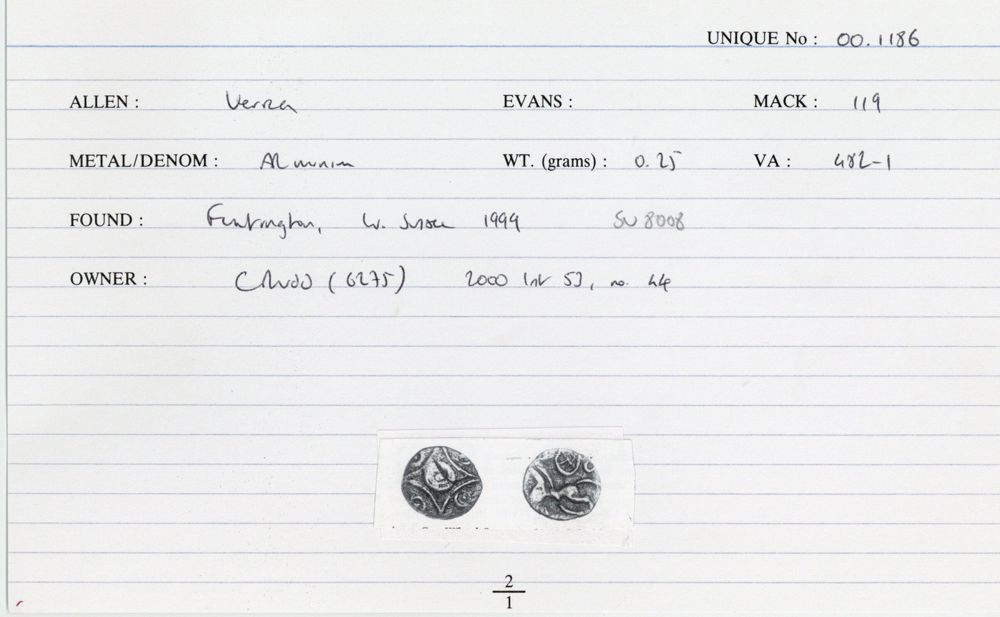 UNIQUE No : 00.1186
ALLEN : Verica EVANS : MACK : 119
METAL/DENOM : AR minim WT. (grams) : 0.25 VA : 482-1
FOUND : Funtington, W. Sussex 1999 SU 8008
OWNER : (6275) 2000 53, no. 44
2
1